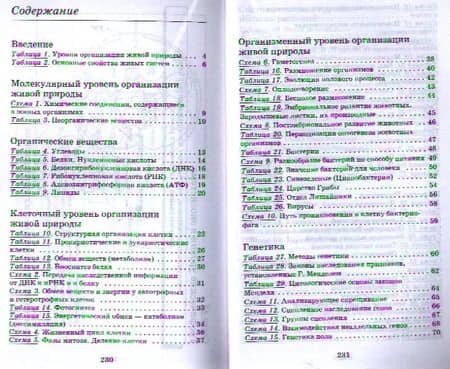 Содержание
Введение
Таблица 1. Уровни организации живой природы 4
Таблица 2. Основные свойства живых систем 6
Молекулярный уровень организации
живой природы
Схема 1. Химические соединения, содержащиеся
в живых организмах 9
Таблица 3. Неорганические вещества 10
Органические вещества
Таблица 4. Углеводы 13
Таблица 5. Белки. Нуклеиновые кислоты 14
Таблица 6. Дезоксирибонуклеиновая кислота (ДНК) 16
Таблица 7. Рибонуклеиновая кислота (РНК) 18
Таблица 8. Аденозинтрифосфорная кислота (АТФ) 19
Таблица 9. Липиды 20
Клеточный уровень организации
живой природы
Таблица 10. Структурная организация клетки 22
Таблица 11. Прокариотические и эукариотические
клетки 26
Таблица 12. Обмен веществ (метаболизм) 27
Таблица 13. Биосинтез белка 30
Схема 2. Передача наследственной информации
от ДНК к иРНК и к белку 31
Схема 3. Обмен веществ и энергии у автотрофных
и гетеротрофных клеток 32
Таблица 14. Фотосинтез 33
Таблица 15. Энергетический обмен — катаболизм
(диссимиляция) 34
Схема 4. Жизненный цикл клетки 36
Схема 5. Фазы митоза. Деление клетки 37
230
Организменный уровень организации
живой природы
Схема 6. Гаметогенез 38
Таблица 16. Размножение организмов 40
Таблица 17. Эволюция полового процесса 42
Схема 7. Оплодотворение 43
Таблица 18. Бесполое размножение 44
Таблица 19. Эмбриональное развитие животных.
Зародышевые листки, их производные 45
Схема 8. Постэмбриональное развитие животных 46
Таблица 20. Периодизация онтогенеза животных
организмов 47
Таблица 21. Бактерии 48
Схема 9. Разнообразие бактерий по способу питания 49
Таблица 22. Значение бактерий для человека 50
Таблица 23. Синезеленые (Цианобактерии) 52
Таблица 24. Царство Грибы 54
Таблица 25. Отдел Лишайники 55
Таблица 26. Вирусы 58
Схема 10. Путь проникновения в клетку бактерио-
фага 59
Генетика
Таблица 27. Методы генетики 60
Таблица 28. Законы наследования признаков,
установленные Г. Менделем 62
Таблица 29. Цитологические основы законов
Менделя 64
Схема 11. Анализирующее скрещивание 65
Схема 12. Сцепленное наследование генов 66
Схема 13. Группы сцепления 67
Схема 14. Взаимодействия неаллельных генов 68
Схема 15. Генетика пола 70
231